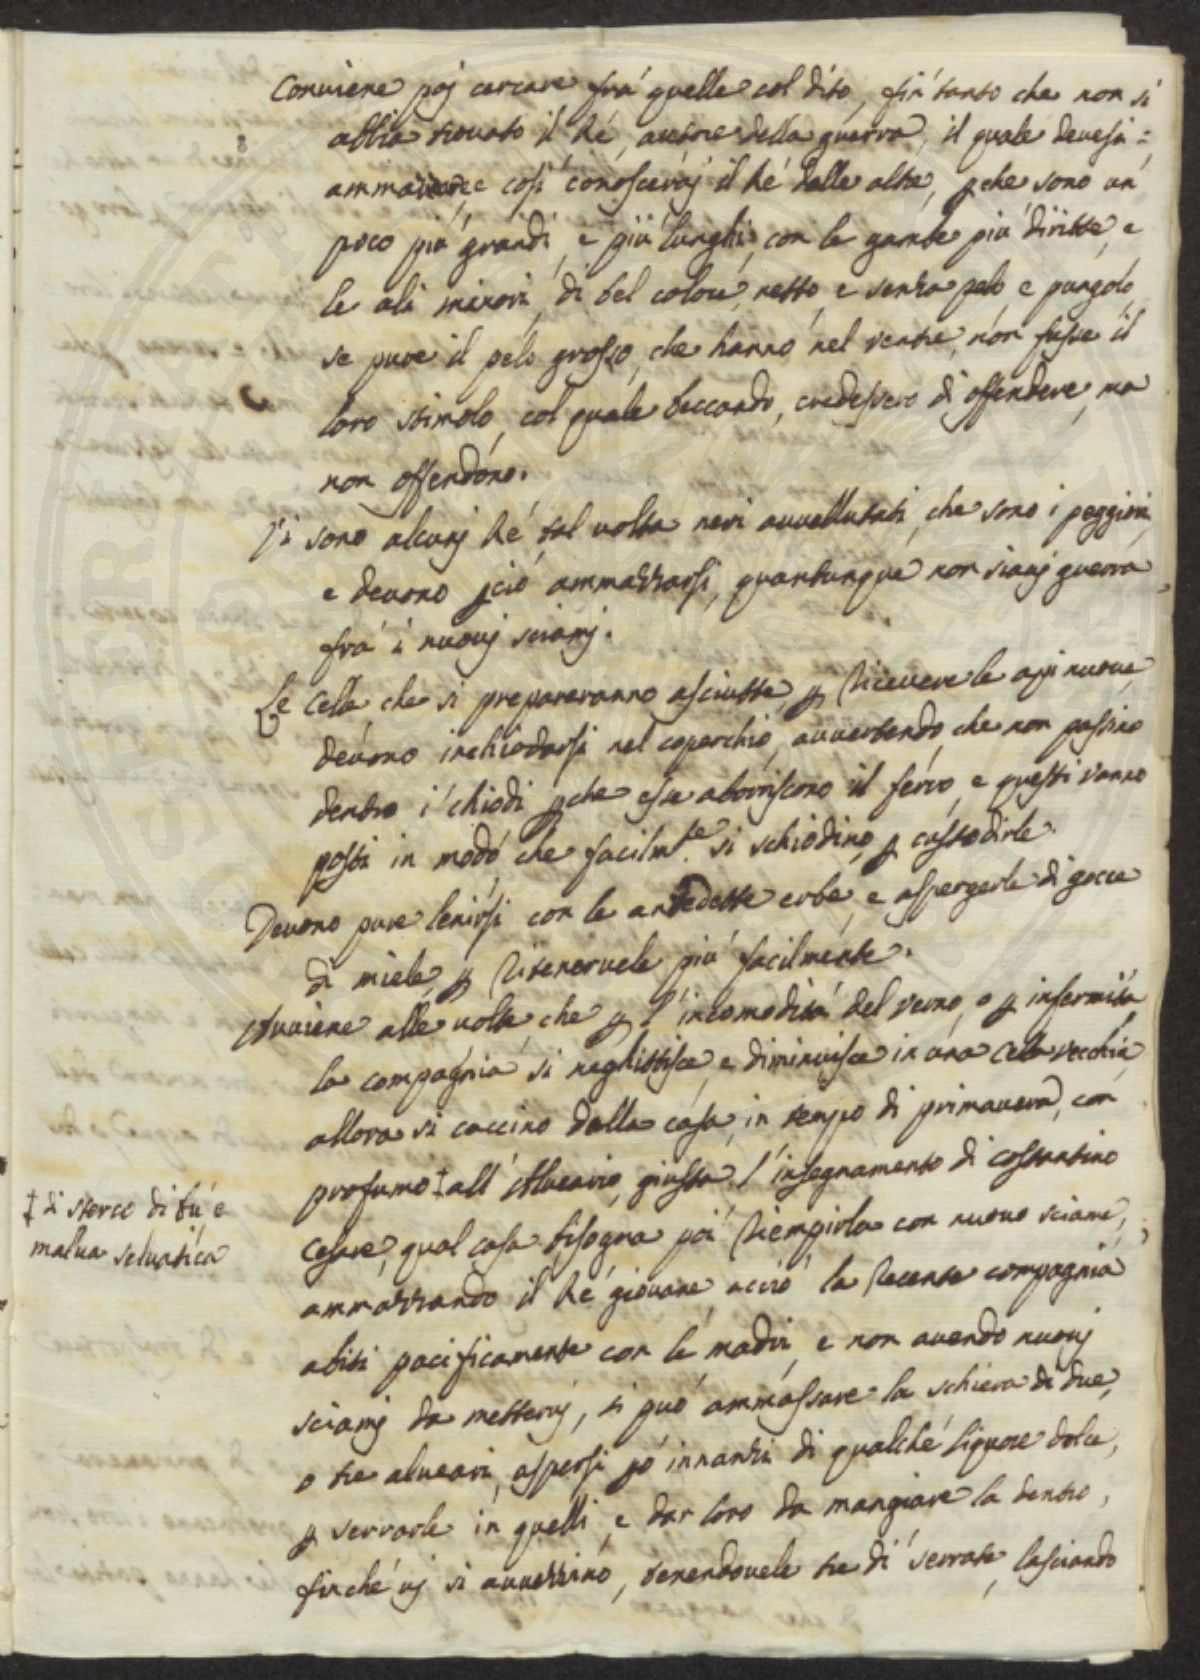 Conuiene poj cercare frá quelle col dito, fin'tanto che non si
abbia trouato il Ré, autore della guerra, il quale deuesi =
ammazzare e cosi conoscerai il Ré dalle altre, pche sono un
poco piú grandi, e piú lunghi, con le gambe piú diritte, e
le ali minori, di bel colore, netto, e senza pelo e pungolo,
se pure il pelo grosso, che hanno nel ventre, non fusse il
loro stimolo, col quale beccando, credessero di offendere, ma
non offendono.
Vi sono alcunj Ré tal uolta neri auuellutati, che sono i peggiori,
e deuono pció ammazzarsi, quantunque non siaui guerra
frá i nuouj sciamj.
Le Celle che si prepareranno asciutte, p riceuere le api nuoue
deuono inchiodarsi nel coperchio, auuertendo che non passino
dentro i chiodi pche esse aboriscono il ferro, e questi vanno
posti in modo che facilmte. si schiodino, p custodirle.
Deuono pure lenirsi con le antedette erbe, e aspergerle di gocce
di miele, p ritenervele piú facilmente.
Auuiene alle uolte, che p l'incomoditá del verno, o p infermitá
la compagnia si neghittisce, e diminuisce in una Cella vecchia,
allora si caccino dalla casa, in tempo di primauera, con
profumo ‡ all'Alueario, giusta l'insegnamento di costantino
‡ di sterco di bú e
malua seluatica
Cesare, qual casa bisogna poi riempirla con nuouo sciame,
ammazzando il Ré giouane, acció la recente compagnia
abiti pacificamente con le madri, e non auendo nuouj
sciamj da metteruj, si puó ammassare la schiera di due,
o tre alueari, aspersi pó innanzi di qualche liquore dolce,
p serrarle in quelli, e dar loro da mangiare la dentro,
finché uj si auuezzino, tenendouele tre di serrate, lasciando